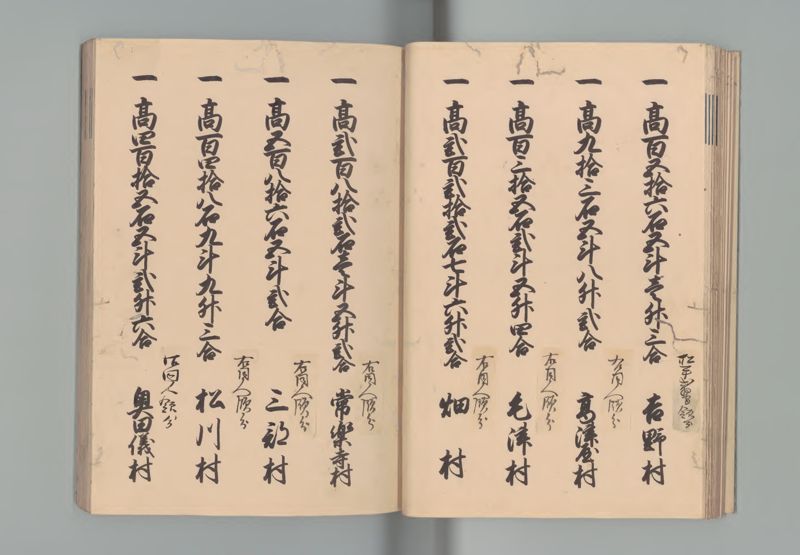 一 高百五拾六石五斗壱升三合
吉野村
一 高九拾三石五斗八升弐合
右同人領分
高津屋村
一 高百三拾五石弐斗五升四合
右同人領分
毛津村
一 高弐百弐拾弐石七斗六升弐合
右同人領分
畑村
一 高弐百八拾弐石壱斗五升弐合
右同人領分
常楽寺村
一 高五百八拾六石五斗弐合
右同人領分
三部村
一 高百四拾八石九斗九升三合
右同人領分
松川村
一 高四百拾五石五斗弐升六合
右同人領分
奥田儀村